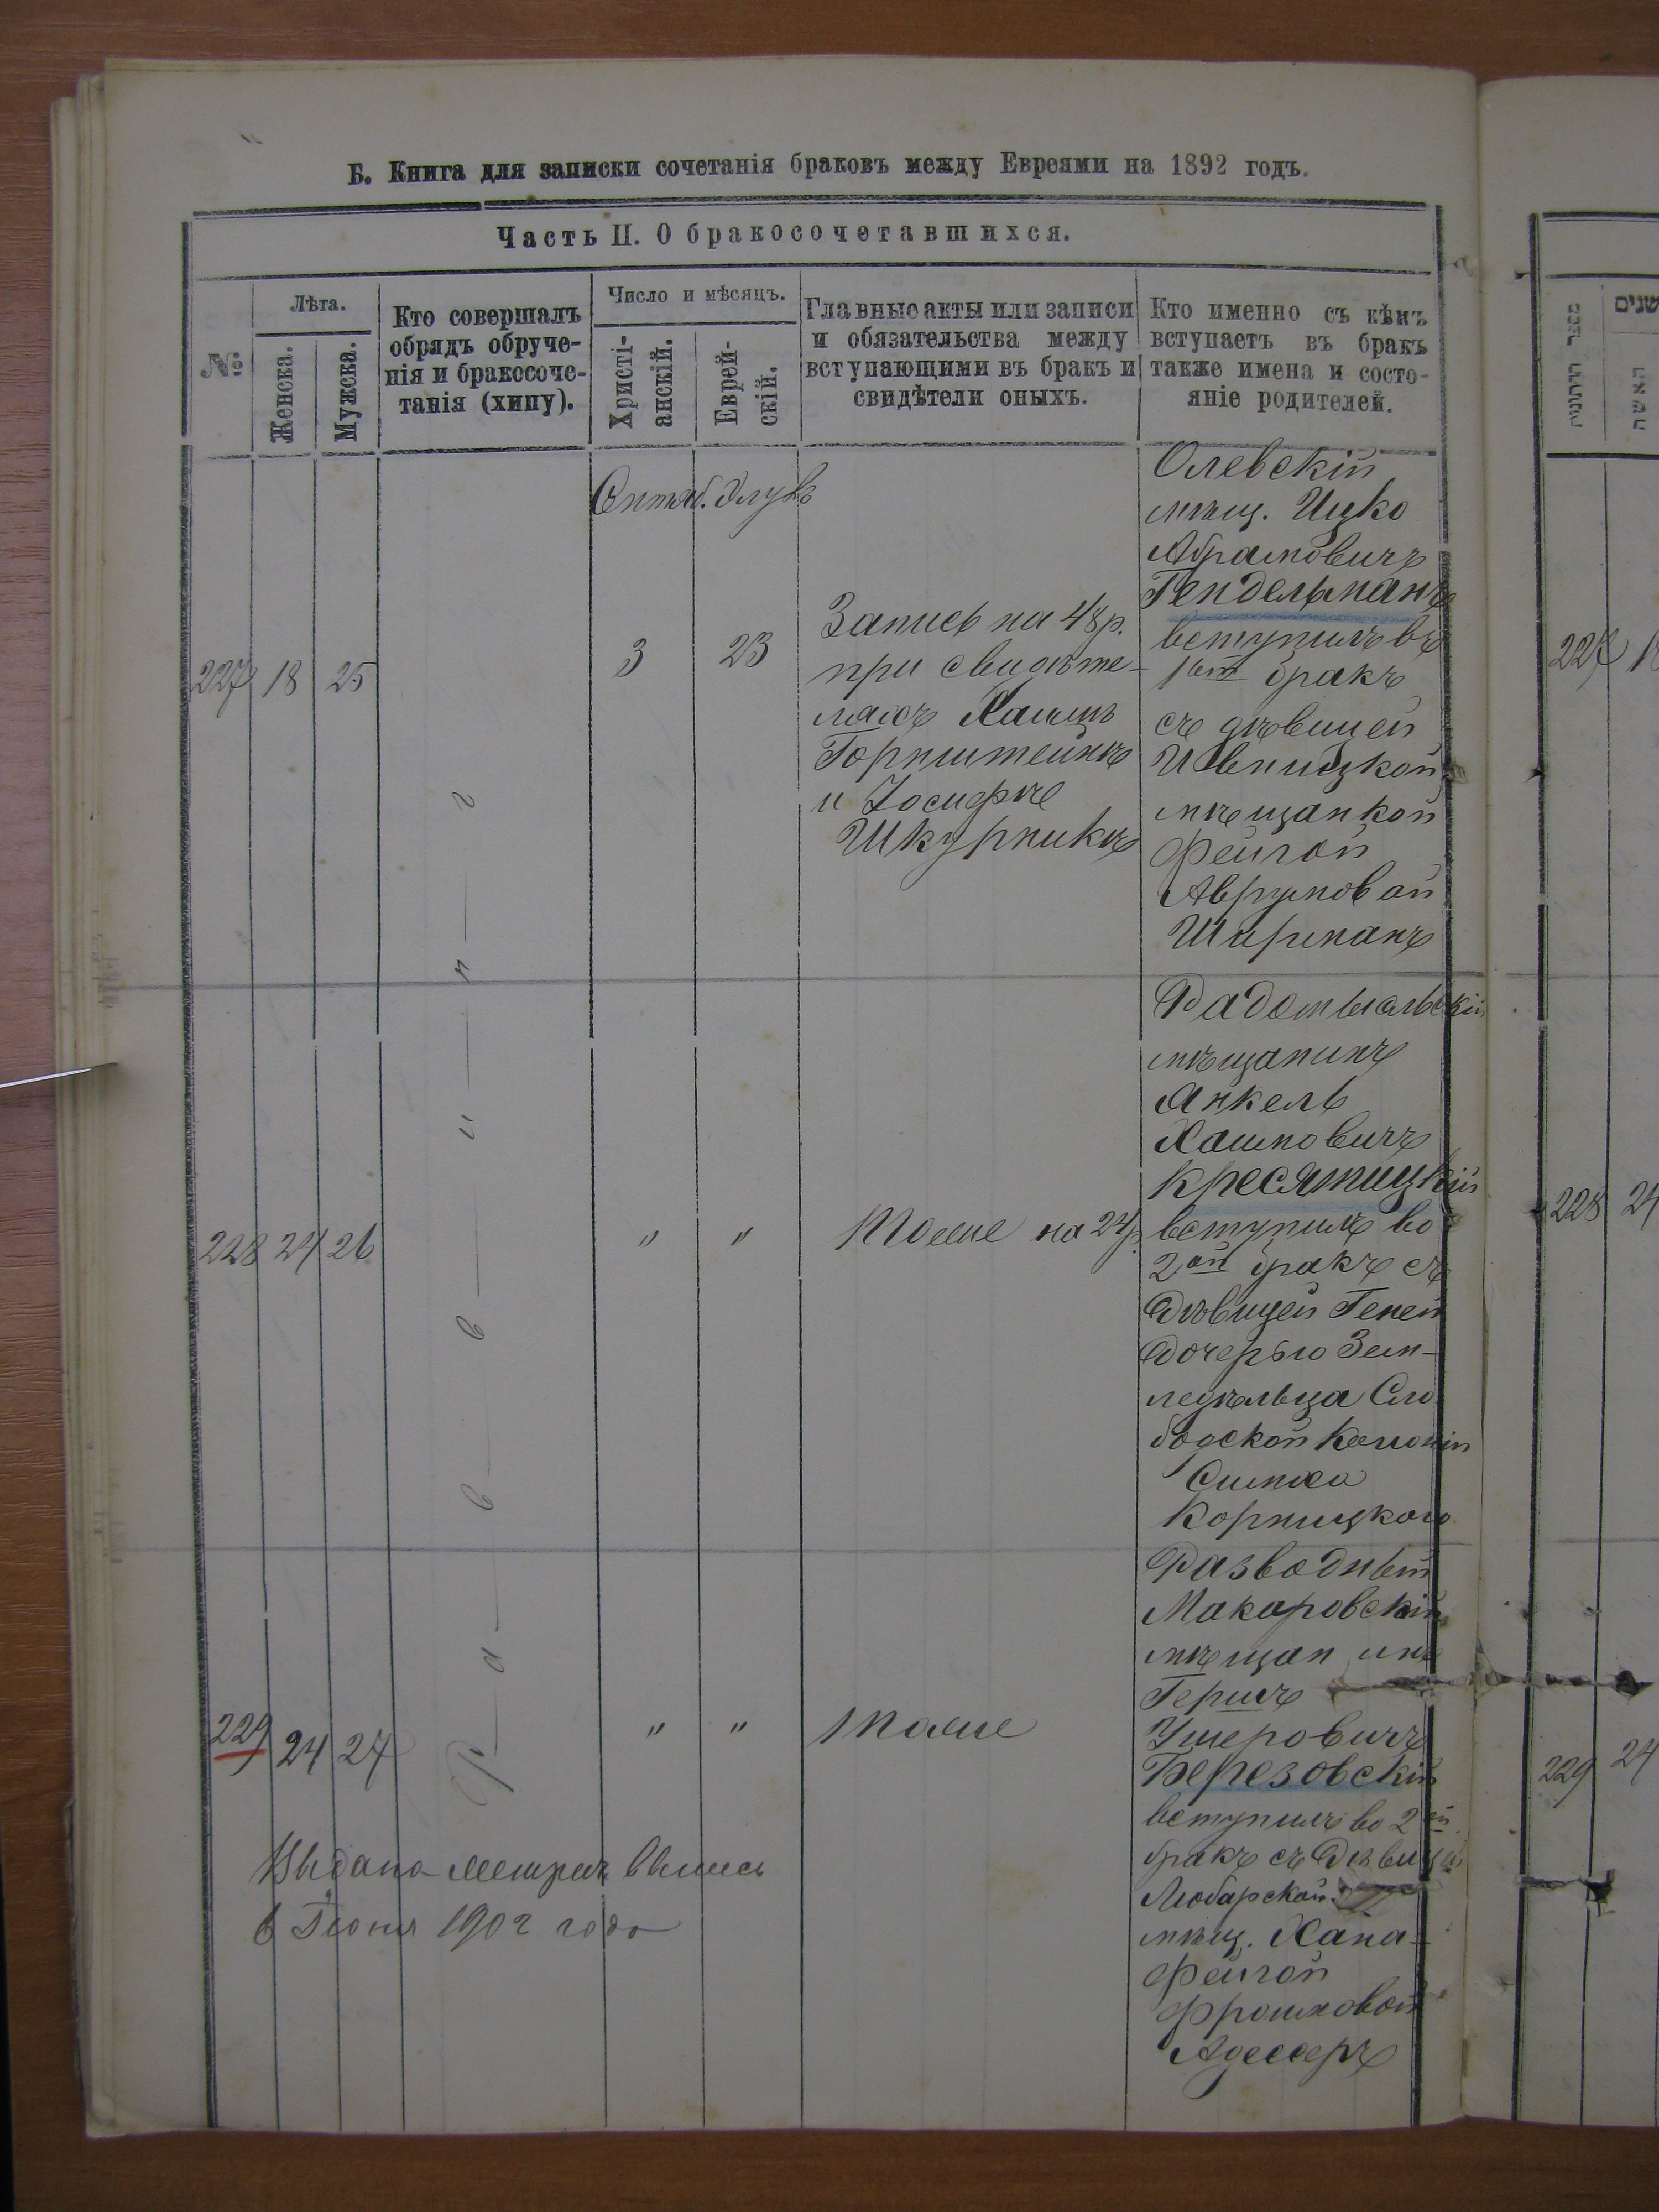 Б. Книга для записки сочетанія браковъ между Евреями на 1892 годъ.
Часть II. О бракосочетавшихся.
№
Лѣта.
Женска.
Мужска.
Кто совершалъ
обрядъ обруче-
нія и бракосоче-
танія (хипу).
Число и мѣсяцъ.
Христі-
анскій.
Еврей-
скій.
Главные акты или записи
и обязательства между
вступающими въ бракъ и
свидѣтели оныхъ.
Кто именно съ кѣмъ
вступаетъ въ бракъ
также имена и состо-
яніе родителей.
Р а в в и н
227 18 25
Сентяб. Элулъ
3 23
Запись на 48 р.
при свидѣте-
ляхъ Хаимъ
Горнштейнъ
и Іосифъ
Шкурникъ
Олевскій
мѣщ. Ицко
Абрамовичъ
Гендельманъ
вступилъ въ
1ый бракъ
съ дѣвицей
Ивницкой
мѣщанкой
Фейгой
Аврумовой
Шарманъ
228 24 26
" "
Тоже на 24 р.
Радомысльскій
мѣщанинъ
Янкель
Хаимовичъ
Кресятицкій
вступилъ во
2ой бракъ съ
дѣвицей Геней
дочерью Зем-
ледѣльца Сло-
бодской Колоніи
Симха
Корницкого
229 24 27
" "
Тоже
Разводный
Макаровскій
мѣщанинъ
Гершъ
Ушеровичъ
Березовскій
вступилъ во 2й
бракъ съ дѣвицей
Любарской
мѣщ. Хана-
Фейгой
Фроимовой
Выдана метрич. выпись
6 Іюня 1902 года
מספר
שנים
האשה
227 18
228 24
229 24